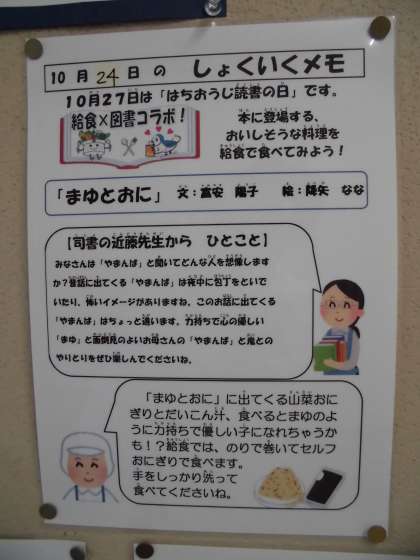 10月24日の しょくいくメモ
10月27日は「はちおうじ読書の日」です。
給食×図書コラボ！
本に登場する、
おいしそうな料理を
給食で食べてみよう！
「まゆとおに」 文：富安 陽子 絵：降矢 なな
【司書の近藤先生から ひとこと】
みなさんは「やまんば」と聞いてどんな人を想像します
か？昔話に出てくる「やまんば」は夜中に包丁をといで
いたり、怖いイメージがありますね。このお話に出てくる
「やまんば」はちょっと違います。力持ちで心の優しい
「まゆ」と面倒見のよいお母さんの「やまんば」と鬼との
やりとりをぜひ楽しんでくださいね。
「まゆとおに」に出てくる山菜おに
ぎりとだいこん汁、食べるとまゆのよ
うに力持ちで優しい子になれちゃうか
も！？給食では、のりで巻いてセルフ
おにぎりで食べます。
手をしっかり洗って
食べてくださいね。